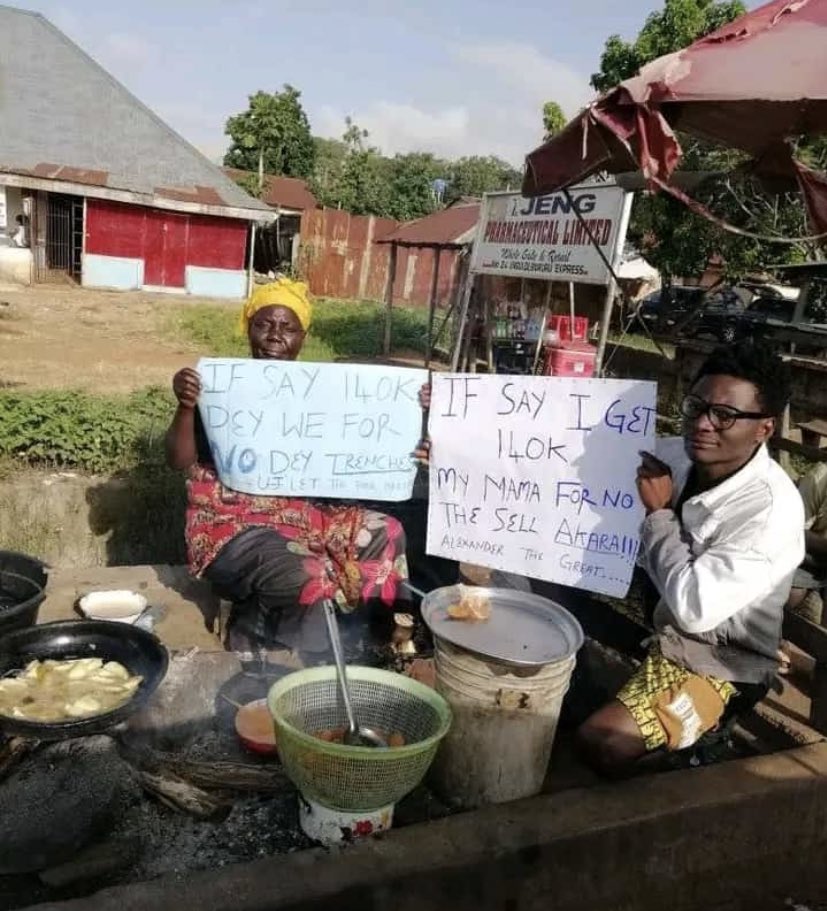 JENG
PHARMACEUTICAL LIMITED
Whole Sale & Retail
IF SAY 140K
DEY WE FOR
NO DEY TRENCHES
LET THE POOR
IF SAY I GET
140K
MY MAMA FOR NO
THE SELL AKARA!!!
ALEXANDER THE GREAT......